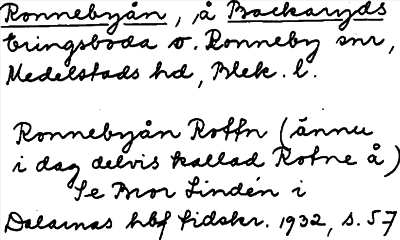 Ronnebyån, å Backaryds
Eringsboda o. Ronneby snr,
Medelstads hd, Blek. l.
Ronnebyån Roffn (ännu
i dag delvis kallad Rotne å)
Se Bror Lindén i
Dalarnas hbf tidskr. 1932, s. 57